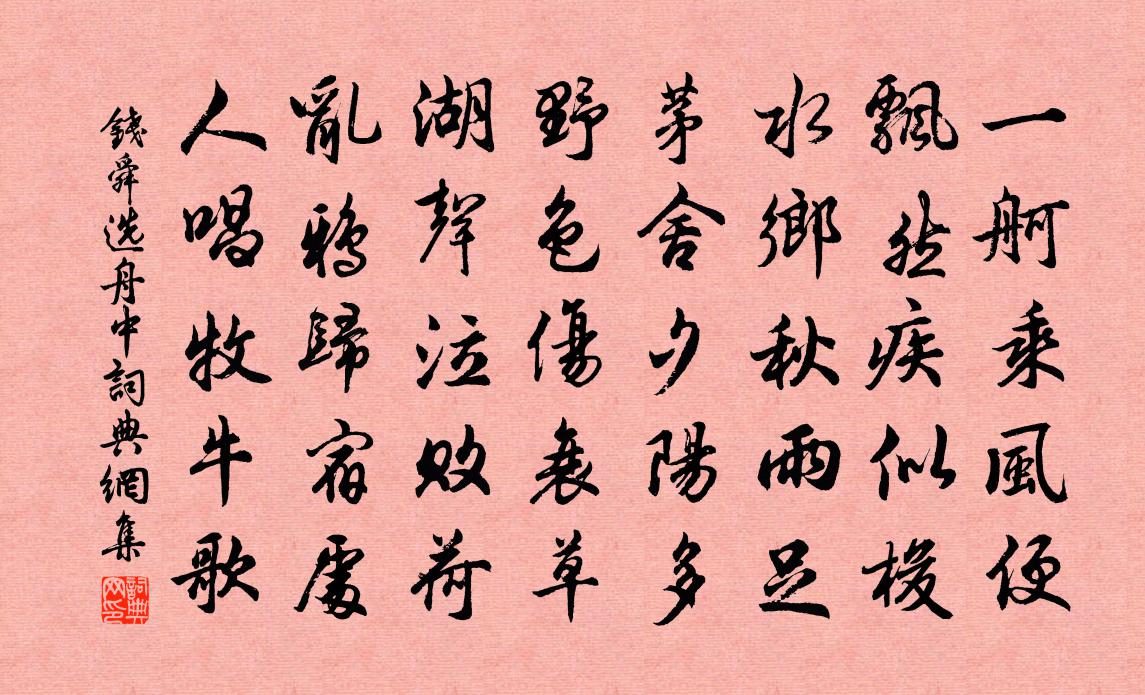 一舸乘風便
飄然疾似梭
水鄉秋雨足
茅舍夕陽多
野色傷衰草
湖聲泣敗荷
亂鴉歸宿處
人唱牧牛歌
錢舜选舟中詞典網集
詞典網印